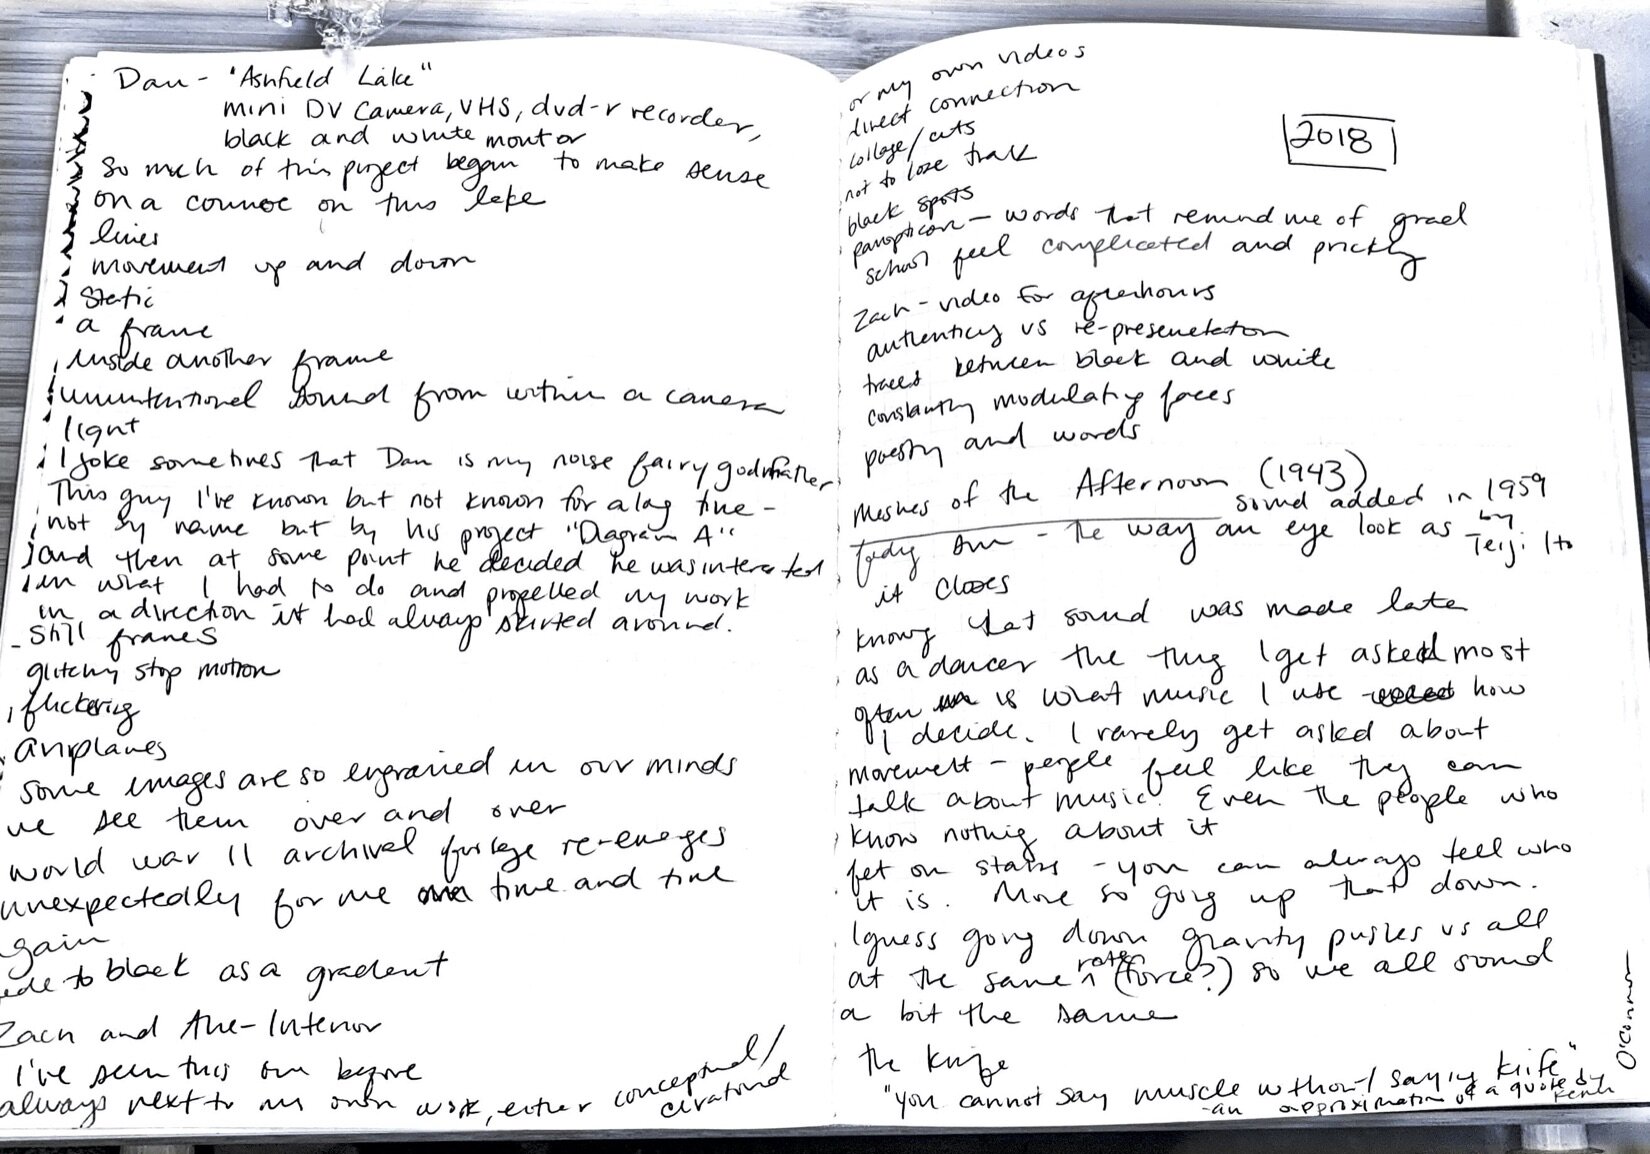 Dan - "Ashfield Lake"
mini DV Camera, VHS, dvd-r recorder,
black and white montor
So much of this project began to make sense
on a counoe on this lake
lines
movement up and down
Static
a frame
inside another frame
unintentional sound from within a camera
light
I joke sometimes that Dan is my noise fairy godfather
This guy I've known but not known for a long time -
not by name but by his project "Diagram A"
and then at some point he decided he was interested
in what I had to do and propelled my work
in a direction it had always skirted around.
- Still frames
glitchy stop motion
flickering
airplanes
some images are so engrained in our minds
we see them over and over
world war II archival footage re-emerges
unexpectedly for me time and time
gain
ede to black as a gradent
Zach and the - Interior
I've seen this one before
always next to my own work, either conceptual/
curatorial
or my own videos
direct connection
collage/cuts
not to lose track
black spots
2018
panopticon - words that remind me of grad
school feel complicated and prickly
Zach - video for afterhours
authenticy vs re-presentation
traces between black and white
constantly modulating faces
poetry and words
Meshes of the Afternoon (1943)
sound added in 1959
by Teiji Ito
- the way an eye look as
it closes
knowing that sound was made later
as a dancer the thing I get asked most
often is what music I use how
I decide. I rarely get asked about
movement - people feel like they can
talk about music. Even the people who
know nothing about it
feet on stairs - you can always tell who
it is. More so going up that down.
I guess going down gravity pushes us all
at the same rate (force?) so we all sound
a bit the same
the knife
"you cannot say muscle without saying knife"
- an approximation of a quote by
O'Connor